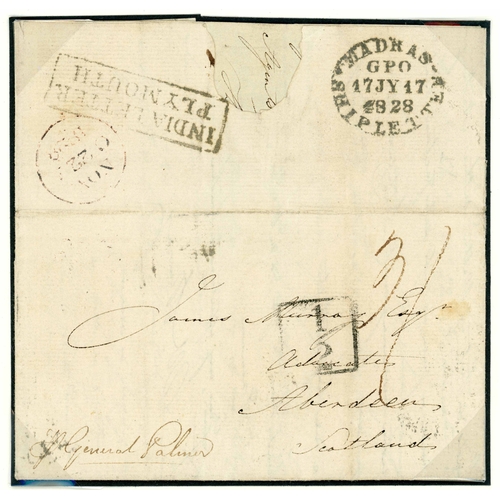 Agents
MADRAS
GPO
17JY17
1828
SHIP LETTER
INDIA LETTER
PLYMOUTH
NOV
22
James Murray Esqr
Advocate
Aberdeen
Scotland
1/2
General Palmer